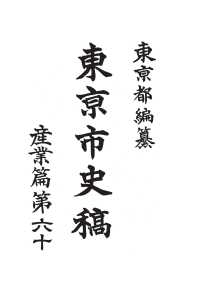 東京都編纂
東京市史稿
産業篇第六十